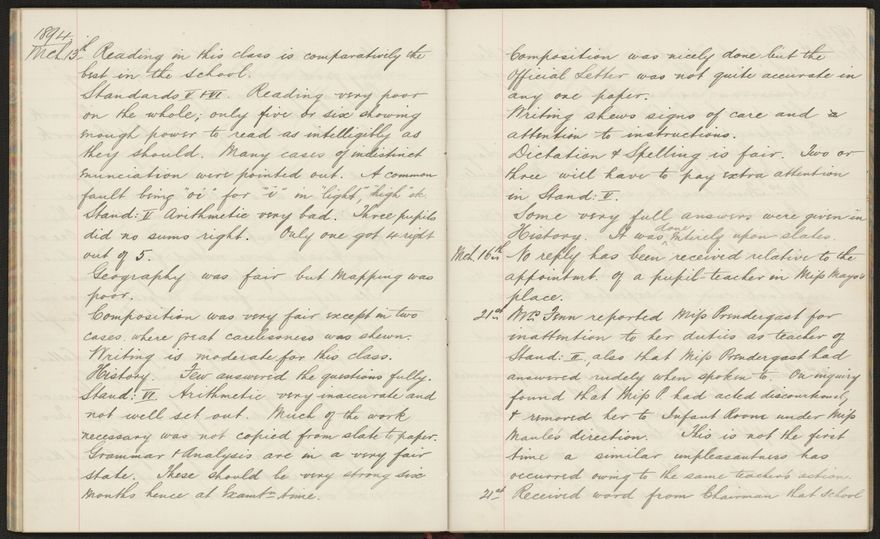 1894
Mch 13th Reading in this class is comparatively the
best in the school.
Standards V & VI. Reading very poor
on the whole; only five or six showing
enough power to read as intelligibly as
they should. Many cases of indistinct
enunciation were pointed out. A common
fault being "oi" for "i" in "light", "high" &c.
Stand: V Arithmetic very bad. Three pupils
did no sums right. Only one got 4 right
out of 5.
Geography was fair but Mapping was
poor.
Composition was very fair except in two
cases where great carelessness was shewn.
Writing is moderate for this class.
History. Few answered the questions fully.
Stand: VI Arithmetic very inaccurate and
not well set out. Much of the work
necessary was not copied from slate to paper.
Grammar & Analysis are in a very fair
state. These should be very strong six
months hence at Examtn time.
Composition was nicely done but the
Official Letter was not quite accurate in
any one paper.
Writing shews signs of care and
attention to instructions.
Dictation & Spelling is fair. Two or
three will have to pay extra attention
in Stand: V.
Some very full answers were given in
History. It was done entirely upon slates.
Mch 16th No reply has been received relative to the
appointmt. of a pupil-teacher in Miss Mayo's
place.
21st Mrs Fenn reported Miss Prendergast for
inattention to her duties as teacher of
Stand: II, also that Miss Prendergast had
answered rudely when spoken to. On inquiry
found that Miss P had acted discourteously
& removed her to Infant Room under Miss
Maule's direction. This is not the first
time a similar unpleasantness has
occurred owing to the same teacher's action.
21st Received word from Chairman that School